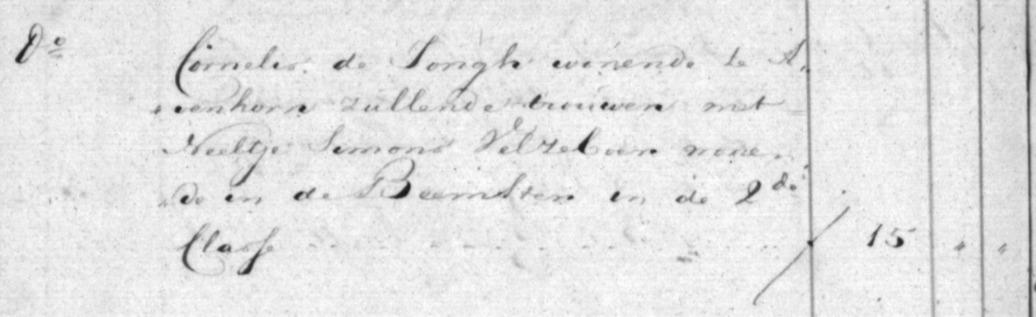 Do Cornelis de Jongh wonende te A
venhorn zullende trouwen met
Neeltje Simons Velzeboer wonen
de in de Beemster in de 2de
Classe / 15 " "